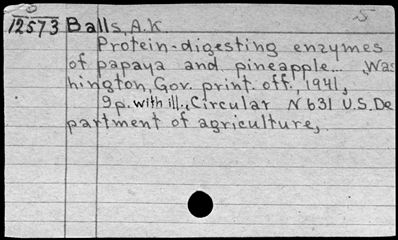 5
12573 Balls, A.K.
Protein-digesting enzymes
of papaya and pineapple... Was
hington, Gov. print. off., 1941,
9p. with ill., Circular N 631 U.S. De
partment of agriculture,